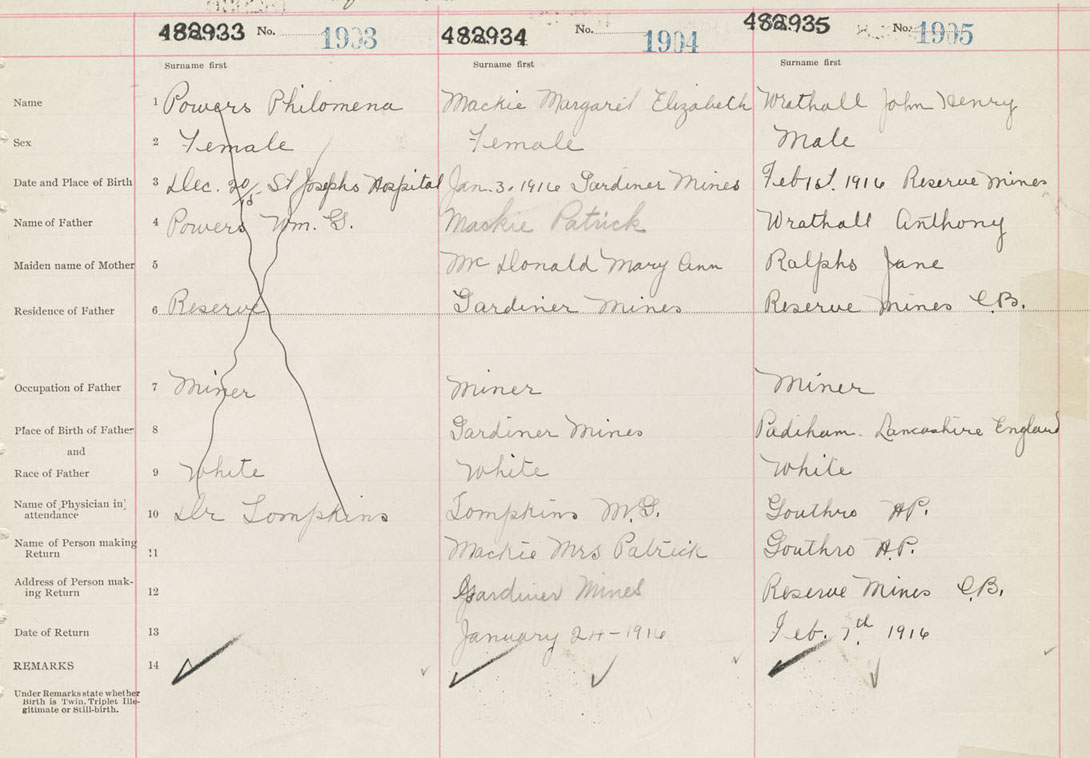 482933 No. 1903 482934 No. 1904 482935 No. 1905
Surname first Surname first Surname first
Name 1 Powers Philomena Mackie Margaret Elizabeth Wrathall John Henry
Sex 2 Female Female Male
Date and Place of Birth 3 Dec. 20/15 St Josephs Hospital Jan. 3. 1916 Gardiner Mines Feb 1st. 1916 Reserve Mines
Name of Father 4 Powers Wm. G. Mackie Patrick Wrathall Anthony
Maiden name of Mother 5 Mc Donald Mary Ann Ralphs Jane
Residence of Father 6 Reserve Gardiner Mines Reserve Mines C.B.
Occupation of Father 7 Miner Miner Miner
Place of Birth of Father 8 Gardiner Mines Padiham. Lancashire England
and
Race of Father 9 White White White
Name of Physician in attendance 10 Dr Tompkins Tompkins M.G. Gouthro H.P.
Name of Person making Return 11 Mackie Mrs Patrick Gouthro H.P.
Address of Person making Return 12 Gardiner Mines Reserve Mines C.B.
Date of Return 13 January 24-1916 Feb. 7th 1916
REMARKS 14
Under Remarks state whether
Birth is Twin, Triplet Ille-
gitimate or Still-birth.